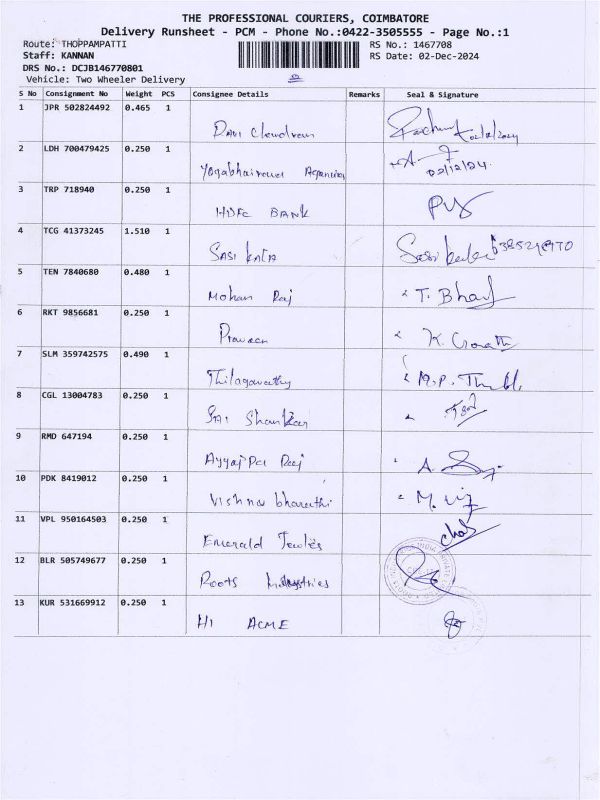 THE PROFESSIONAL COURIERS, COIMBATORE
Delivery Runsheet - PCM - Phone No.:0422-3505555 - Page No.:1
Route: THOPPAMPATTI RS No.: 1467708
Staff: KANNAN RS Date: 02-Dec-2024
DRS No.: DCJB146770801
Vehicle: Two Wheeler Delivery
S No Consignment No Weight PCS Consignee Details Remarks Seal & Signature
1 JPR 502824492 0.465 1
2 LDH 700479425 0.250 1
02/12/24.
3 TRP 718940 0.250 1
HDFC BANK
4 TCG 41373245 1.510 1
Sasi kala
5 TEN 7840680 0.480 1
Mohan Raj T. Bharf
6 RKT 9856681 0.250 1
Praveen
7 SLM 359742575 0.490 1
Thilagavathy
8 CGL 13004783 0.250 1
Sai Shankar
9 RMD 647194 0.250 1
Ayyappa Raj
10 PDK 8419012 0.250 1
Vishnu bharathi
11 VPL 950164503 0.250 1
Emerald
12 BLR 505749677 0.250 1
Roots Industries
13 KUR 531669912 0.250 1
HI ACME